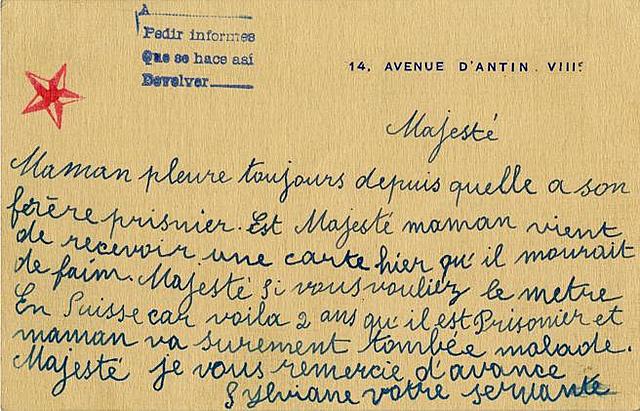 A
Pedir informes
Que se hace así
Devolver
14, AVENUE D'ANTIN. VIIIE
Majesté
Maman pleure toujours depuis quelle a son
frère prisnier. Est Majesté maman vient
de recevoir une carte hier qu'il mourait
de faim. Majesté si vous vouliez le metre
En Suisse car voila 2 ans qu'il est Prisonier et
maman va surement tombée malade.
Majesté je vous remercie d'avance
Sylviane votre servante